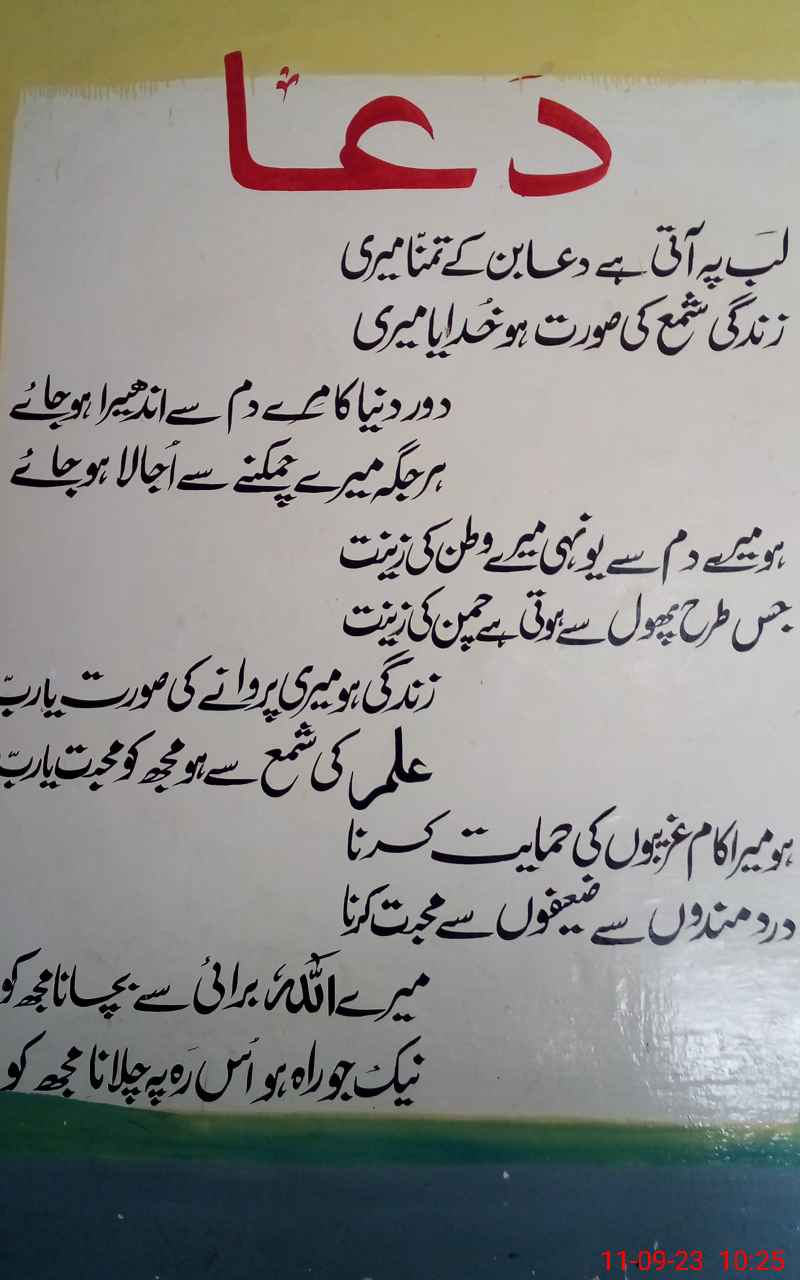 دعا
لب پہ آتی ہے دعا بن کے تمنّا میری
زندگی شمع کی صورت ہو خُدایا میری
دور دنیا کا مرے دم سے اندھیرا ہو جائے
ہر جگہ میرے چمکنے سے اُجالا ہو جائے
ہو میرے دم سے یونہی میرے وطن کی زینت
جس طرح پھول سے ہوتی ہے چمن کی زینت
زندگی ہو میری پروانے کی صورت یارب
علم کی شمع سے ہو مجھ کو محبت یارب
ہو میرا کام غریبوں کی حمایت کرنا
درد مندوں سے ضعیفوں سے محبت کرنا
میرے اللہ برائی سے بچانا مجھ کو
نیک جو راہ ہو اُس رَہ پہ چلانا مجھ کو
11-09-23 10:25